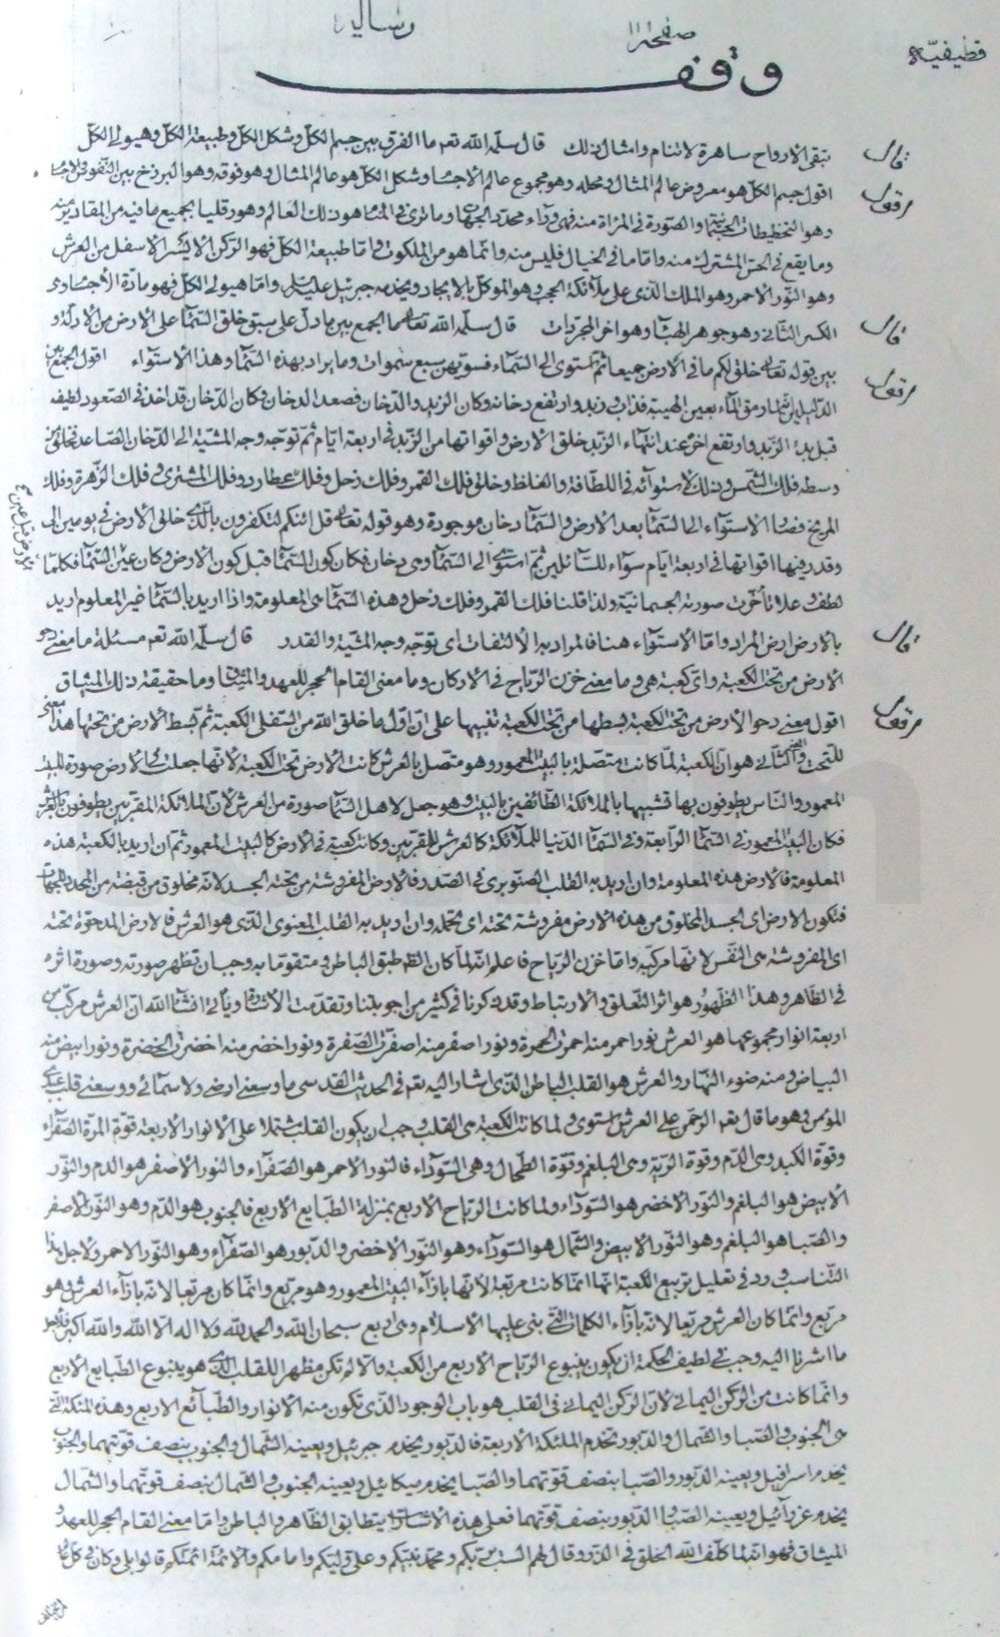 رسالة
صفحة ١١١
قطيفيّة
وقف
تبقى الارواح ساهرة لا تنام وامثال ذلك قال سلّمه الله تعالى ما الفرق بين جسم الكلّ وشكل الكلّ وطبيعة الكلّ وهيولى الكلّ
قال
اقول جسم الكلّ هو معروض عالم المثال ومحله وهو مجموع عالم الاجسام وشكل الكلّ هو عالم المثال وهو فوقه وهو البرزخ بين النفوس والاجسام
وهو التخطيطات الجسمية والصورة في المرآة منه فهى وراء محدد الجهات وما ترى في المنام هو ذلك العالم وهورقليا بجميع ما فيه من المقادير منه
وما يقع في الحس المشترك منه واما ما في الخيال فليس منه وانما هو من الملكوت واما طبيعة الكلّ فهو الركن الايسر الاسفل من العرش
وهو النّور الاحمر وهو الملك الذى على ملآئكة الحجب وهو الموكل بالايجاد ويخدمه جبرئيل عليه السلام واما هيولى الكلّ فهو مادّة الاجسام وى
الكسر الثّانى وهو جوهر الهبآء وهو اخر المجردات قال سلّمه الله تعالى ما الجمع بين ما دلّ على سبق خلق السّمآء على الارض من الادلّة و
قال
بين قوله تعالى خلق لكم ما في الارض جميعا ثمّ استوى الى السّمآء فسوّيهنّ سبع سموات وما يراد بهذه السّمآء وهذا الاستوآء اقول الجمع بين
الدّليلين انّه لما رمق المآء بعين الهيبة فذاب وزبد وارتفع دخانه وكان الزبد والدّخان فصعد الدخان وكان الدّخان قد اخذ في الصعود لطيفه
قبل بدء الزّبد وارتفع اخره عند انتهآء الزّبد خلق الارض واقواتها من الزّبد في اربعة ايّام ثمّ توجّه وجه المشيّة الى الدّخان الصّاعد فخلق من
وسطه فلك الشّمس وذلك لاستوآئه في اللطافة والغلظ وخلق فلك القمر وفلك زحل وفلك عطارد وفلك المشترى وفلك الزّهرة وفلك
المريخ فصار الاستوآء الى السّمآء بعد الارض والسّمآء دخان موجودة وهو قوله تعالى قل ائنكم لتكفرون بالّذى خلق الارض في يومين الى
وقدّر فيها اقواتها في اربعة ايّام سوآء للسّآئلين ثمّ استوى الى السّمآء وهى دخان فكان كون السّمآء قبل كون الارض وكان عين السّمآء فكلّما
الارض قبل عين
لطف وعلا تأخّرت صورته الجسمانيّة ولذا قلنا فلك القمر وفلك زحل وهذه السّمآء هى المعلومة واذا اريد بالسّمآء غير المعلوم اريد
بالارض ارض المراد واما الاستوآء هنا فالمراد به الالتفات اى توجّه وجه المشيّة والقدر قال سلّمه الله تعالى مسئلة ما معنى دحو
قال
الارض من تحت الكعبة واى كعبة هى وما معنى خزن الرّياح في الاركان وما معنى القام الحجر للعهد والميثاق وما حقيقة ذلك الميثاق
اقول معنى دحو الارض من تحت الكعبة بسطها من تحت الكعبة تنبيها على انّ اوّل ما خلق الله من السّفلى الكعبة ثمّ بسط الارض من تحتها هذا معنى
للتّحت والمعنى الثّانى هو انّ الكعبة لمّا كانت متصلة بالبيت المعمور وهو متّصل بالعرش كانت الارض تحت الكعبة لانها جعلت في الارض صورة للبيت
المعمور والنّاس يطوفون بها تشبيها بالملآئكة الطّآئفين بالبيت وهو جعل لاهل السّمآء صورة من العرش لانّ الملآئكة المقرّبين يطوفون بالعرش
فكان البيت المعمور في السّمآء الرّابعة وفى السّمآء الدّنيا للملآئكة كالعرش للمقرّبين وكانت كعبة في الارض كالبيت المعمور ثمّ ان اريد بالكعبة هذه
المعلومة فالارض هذه المعلومة وان اريد به القلب الصّنوبرى في الصّدر فالارض المفروشة من تحته الجسد لانّه مخلوق من قبضة من المحدد للجهات
فتكون الارض اى الجسد المخلوق من هذه الارض مفروشة تحته اى تحمله وان اريد به القلب المعنوى الّذى هو العرش فالارض المدحوّة تحته
اى المفروشة هى النّفس لانّها مركبه واما خزن الرّياح فاعلم انّه لمّا كان الظّاهر طبق الباطن ومتقوّما به وجب ان تظهر صورته وصورة اثره
في الظّاهر وهذا الظّهور هو اثر التّعلّق والارتباط وقد ذكرنا في كثير من اجوبتنا وتقدّمت الاشارة ويأتى انشآء الله انّ العرش مركّب من
اربعة انوار مجموعها هو العرش نور احمر منه احمرّت الحمرة ونور اصفر منه اصفرّت الصّفرة ونور اخضر منه اخضرّت الخضرة ونور ابيض منه
البياض ومنه ضوء النّهار والعرش هو القلب الباطن الّذى اشار اليه تعالى في الحديث القدسى ما وسعنى ارضى ولا سمآئى ووسعنى قلب عبدى
المؤمن وهو ما قال تعالى الرّحمن على العرش استوى ولمّا كانت الكعبة هى القلب وجب ان يكون القلب مشتملا على الانوار الاربعة قوّة المرّة الصّفرآء
وقوّة الكبد وهى الدّم وقوة الرّية وهى البلغم وقوّة الطّحال وهى السّودآء فالنّور الاحمر هو الصّفرآء والنّور الاصفر هو الدم والنّور
الابيض هو البلغم والنّور الاخضر هو السّودآء ولمّا كانت الرّياح الاربع بمنزلة الطّبايع الاربع فالجنوب هو الدّم وهو النّور الاصفر
والصّبا هو البلغم وهو النّور الابيض والشّمال هو السّودآء وهو النّور الاخضر والدّبور هو الصّفرآء وهو النّور الاحمر ولاجل هذا
التّناسب ورد في تعليل تربيع الكعبة انّها انّما كانت مربّعة لانّها بازآء البيت المعمور وهو مربّع وانّما كان مربّعا لانّه بازآء العرش وهو
مربّع وانّما كان العرش مربّعا لانّه بازآء الكلمات الّتى بنى عليها الاسلام وهى اربع سبحان الله والحمد لله ولا اله الّا الله والله اكبر فلاجل
ما اشرنا اليه وجب في لطيف الحكمة ان يكون ينبوع الرّياح الاربع من الكعبة والّا لم تكن مظهرا للقلب الّذى هو ينبوع الطّبايع الاربع
وانّما كانت من الرّكن اليمانى لانّ الرّكن اليمانى في القلب هو باب الوجود الّذى تكون منه الانوار والطّبآئع الاربع وهذه الملئكة الّتى
هى الجنوب والصّبا والشّمال والدّبور تخدم الملئكة الاربعة فالدّبور يخدم جبرئيل ويعينه الشّمال والجنوب بنصف قوّتهما والجنوب
يخدم اسرافيل ويعينه الدّبور والصّبا بنصف قوّتهما والصّبا يخدم ميكآئيل ويعينه الجنوب والشّمال بنصف قوّتهما والشّمال
يخدم عزرآئيل ويعينه الصّبا والدّبور بنصف قوّتهما فعلى هذه الاشارة يتطابق الظّاهر والباطن وامّا معنى القام الحجر للعهد
الميثاق فهو انّه لمّا كلّف الله الخلق في الذّر وقال لهم الست بربّكم ومحمّد نبيّكم وعلىّ وليّكم وامامكم والائمّة ائمّتكم قالوا بلى وكان في كلّ